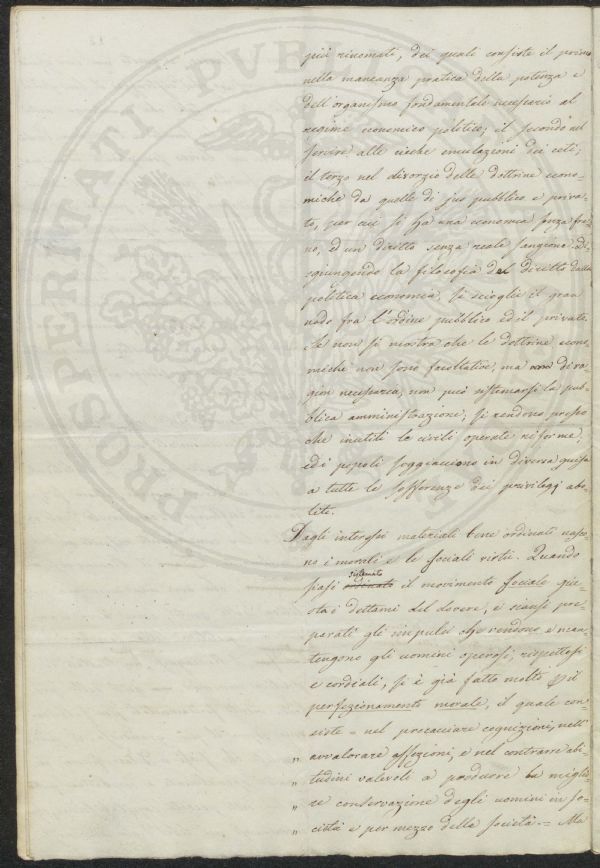 più rinomati, dei quali consiste il primo
nella mancanza pratica della potenza e
dell'organismo fondamentale necessario al
regime economico politico; il secondo nel
servire alle cieche emulazioni dei ceti;
il terzo nel divorzio delle dottrine econo-
miche da quelle di jus pubblico e priva-
to, per cui si ha una economia senza fre-
no, ed un diritto senza reale sanzione. Di-
sgiungendo la filosofia del diritto dalla
politica economia, si scioglie il gran
nodo fra l'ordine pubblico ed il privato.
Se non si mostra che le dottrine econo-
miche non sono facoltative, ma di ra-
gion necessaria, non può sistemarsi la pub-
blica amministrazione, si rendono presso
che inutili le civili operate riforme,
ed i popoli soggiacciono in diversa guisa
a tutte le sofferenze dei privilegj abo-
liti.
Dagli interessi materiali bene ordinati nasco-
no i morali e le sociali virtù. Quando
siasi sistemato il movimento sociale giu-
sta i dettami del dovere, e siansi pre-
parati gli impulsi che rendono e man-
tengono gli uomini operosi, rispettosi
e cordiali, si è già fatto molto pel
perfezionamento morale, il quale con-
siste = nel procacciare cognizioni, nell'
„ avvalorare affezioni, e nel contrarre abi-
„ tudini valevoli a produrre la miglio-
„ re conservazione degli uomini in so-
„ cietà e per mezzo della società = Ma
PROSPERITATI PVBLI